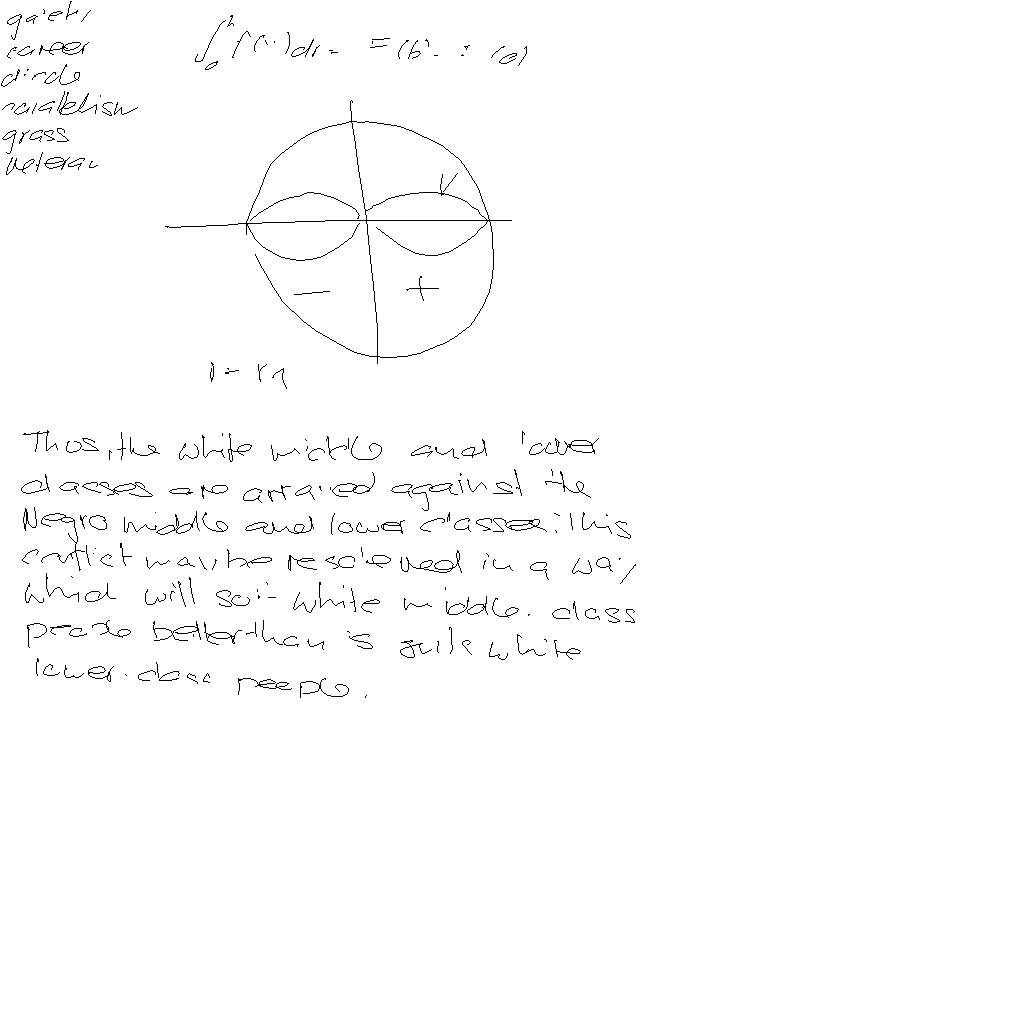 career
circle
parallelism
grass
veteran
V
− +
Thus, the white middle and lower
classes are arrayed against the
Negro middle and lower classes. This
conflict may be resolved in a way
which will suit white middle-class
people better than it suits white
lower-class people.